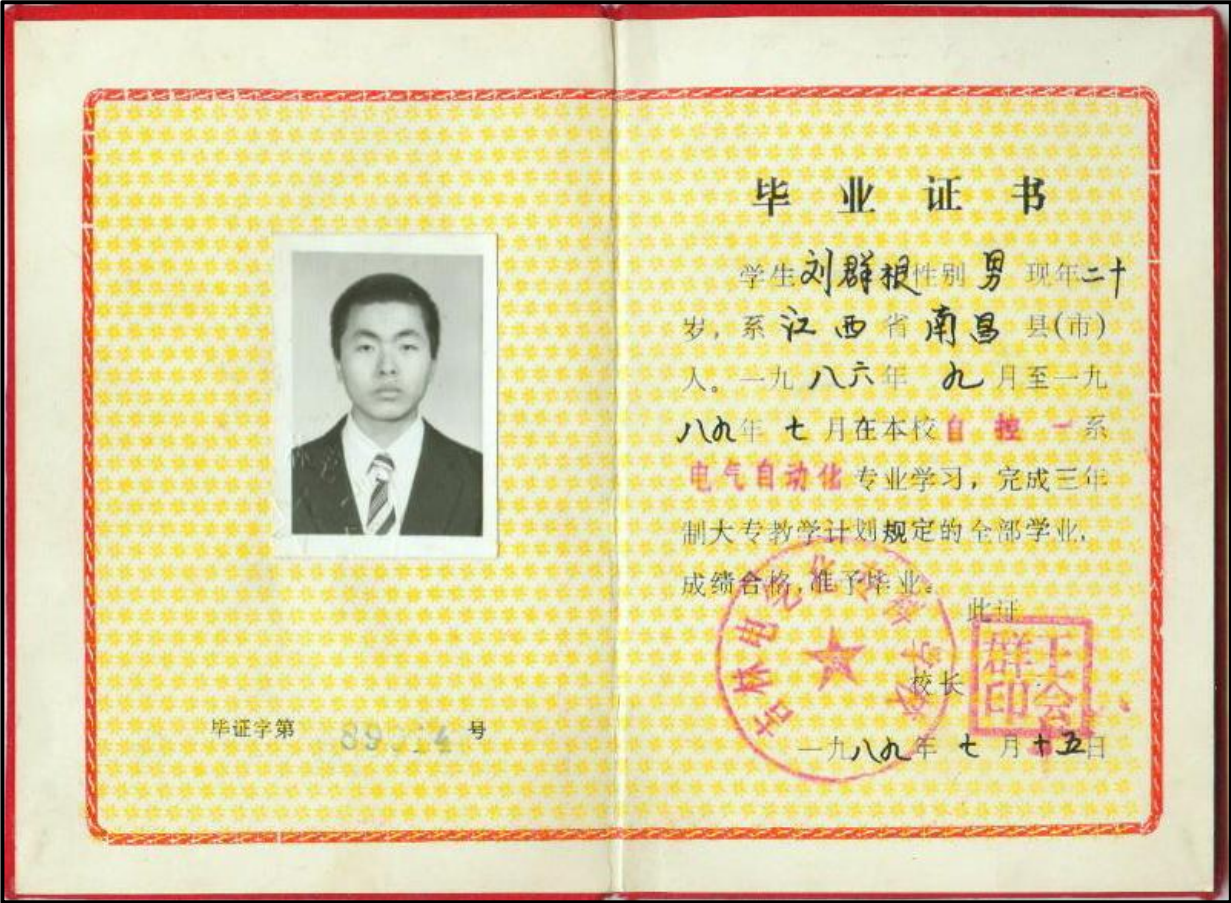 毕业证书
学生刘群根性别 男 现年二十
岁，系 江西 省 南昌 县(市)
人。一九八六年 九 月至一九
八九年 七 月在本校自控一系
电气自动化专业学习，完成三年
制大专教学计划规定的全部学业，
成绩合格，准予毕业。
此证
校长
王会群印
一九八九年 七 月十五日
吉林电气化
毕证字第 号